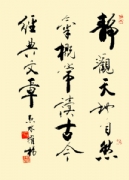 靜觀天地自然
概常讀古今
經典文章